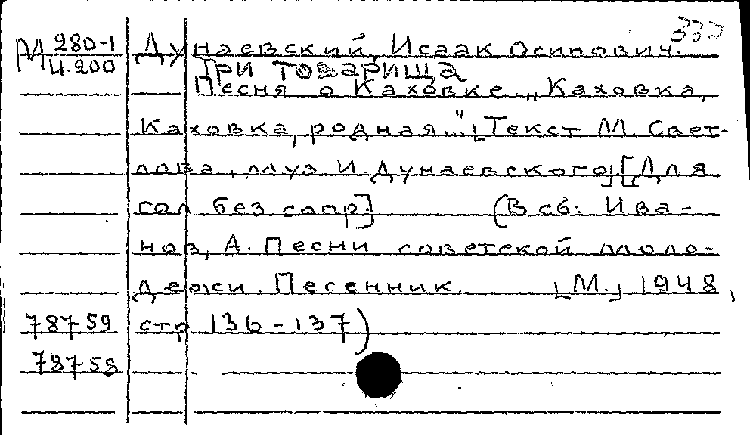 333
М 280-1 Дунаевский, Исаак Осипович.
Ц.200 ТРИ ТОВАРИЩА
Песня о Каховке „Каховка,
Каховка, родная..." [Текст М. Свет-
лова, муз. И. Дунаевского] [Для
гол. без сопр] (В сб: Ива-
нов, А. Песни советской моло-
дежи. Песенник. [М.] 1948,
78759 стр 136-137)
78758